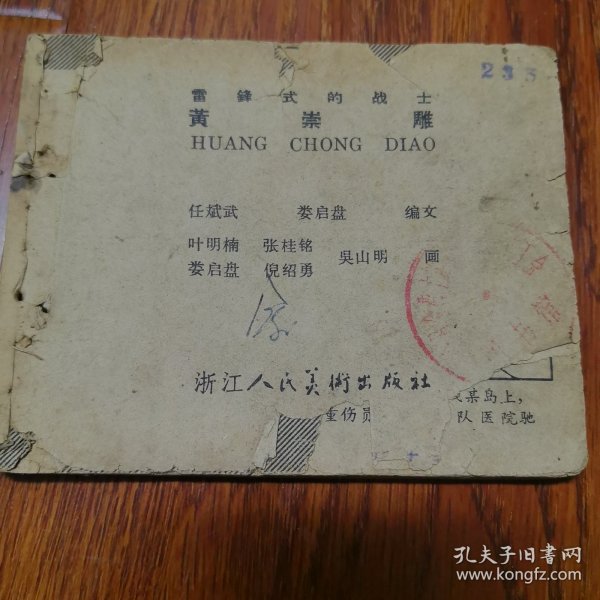 233
雷鋒式的战士
黃崇雕
HUANG CHONG DIAO
任斌武 娄启盘 编文
叶明楠 张桂铭 吳山明 画
娄启盘 倪绍勇
浙江人民美術出版社
某岛上，
重伤员 队医院驰
孔夫子旧书网
www.kongfz.com